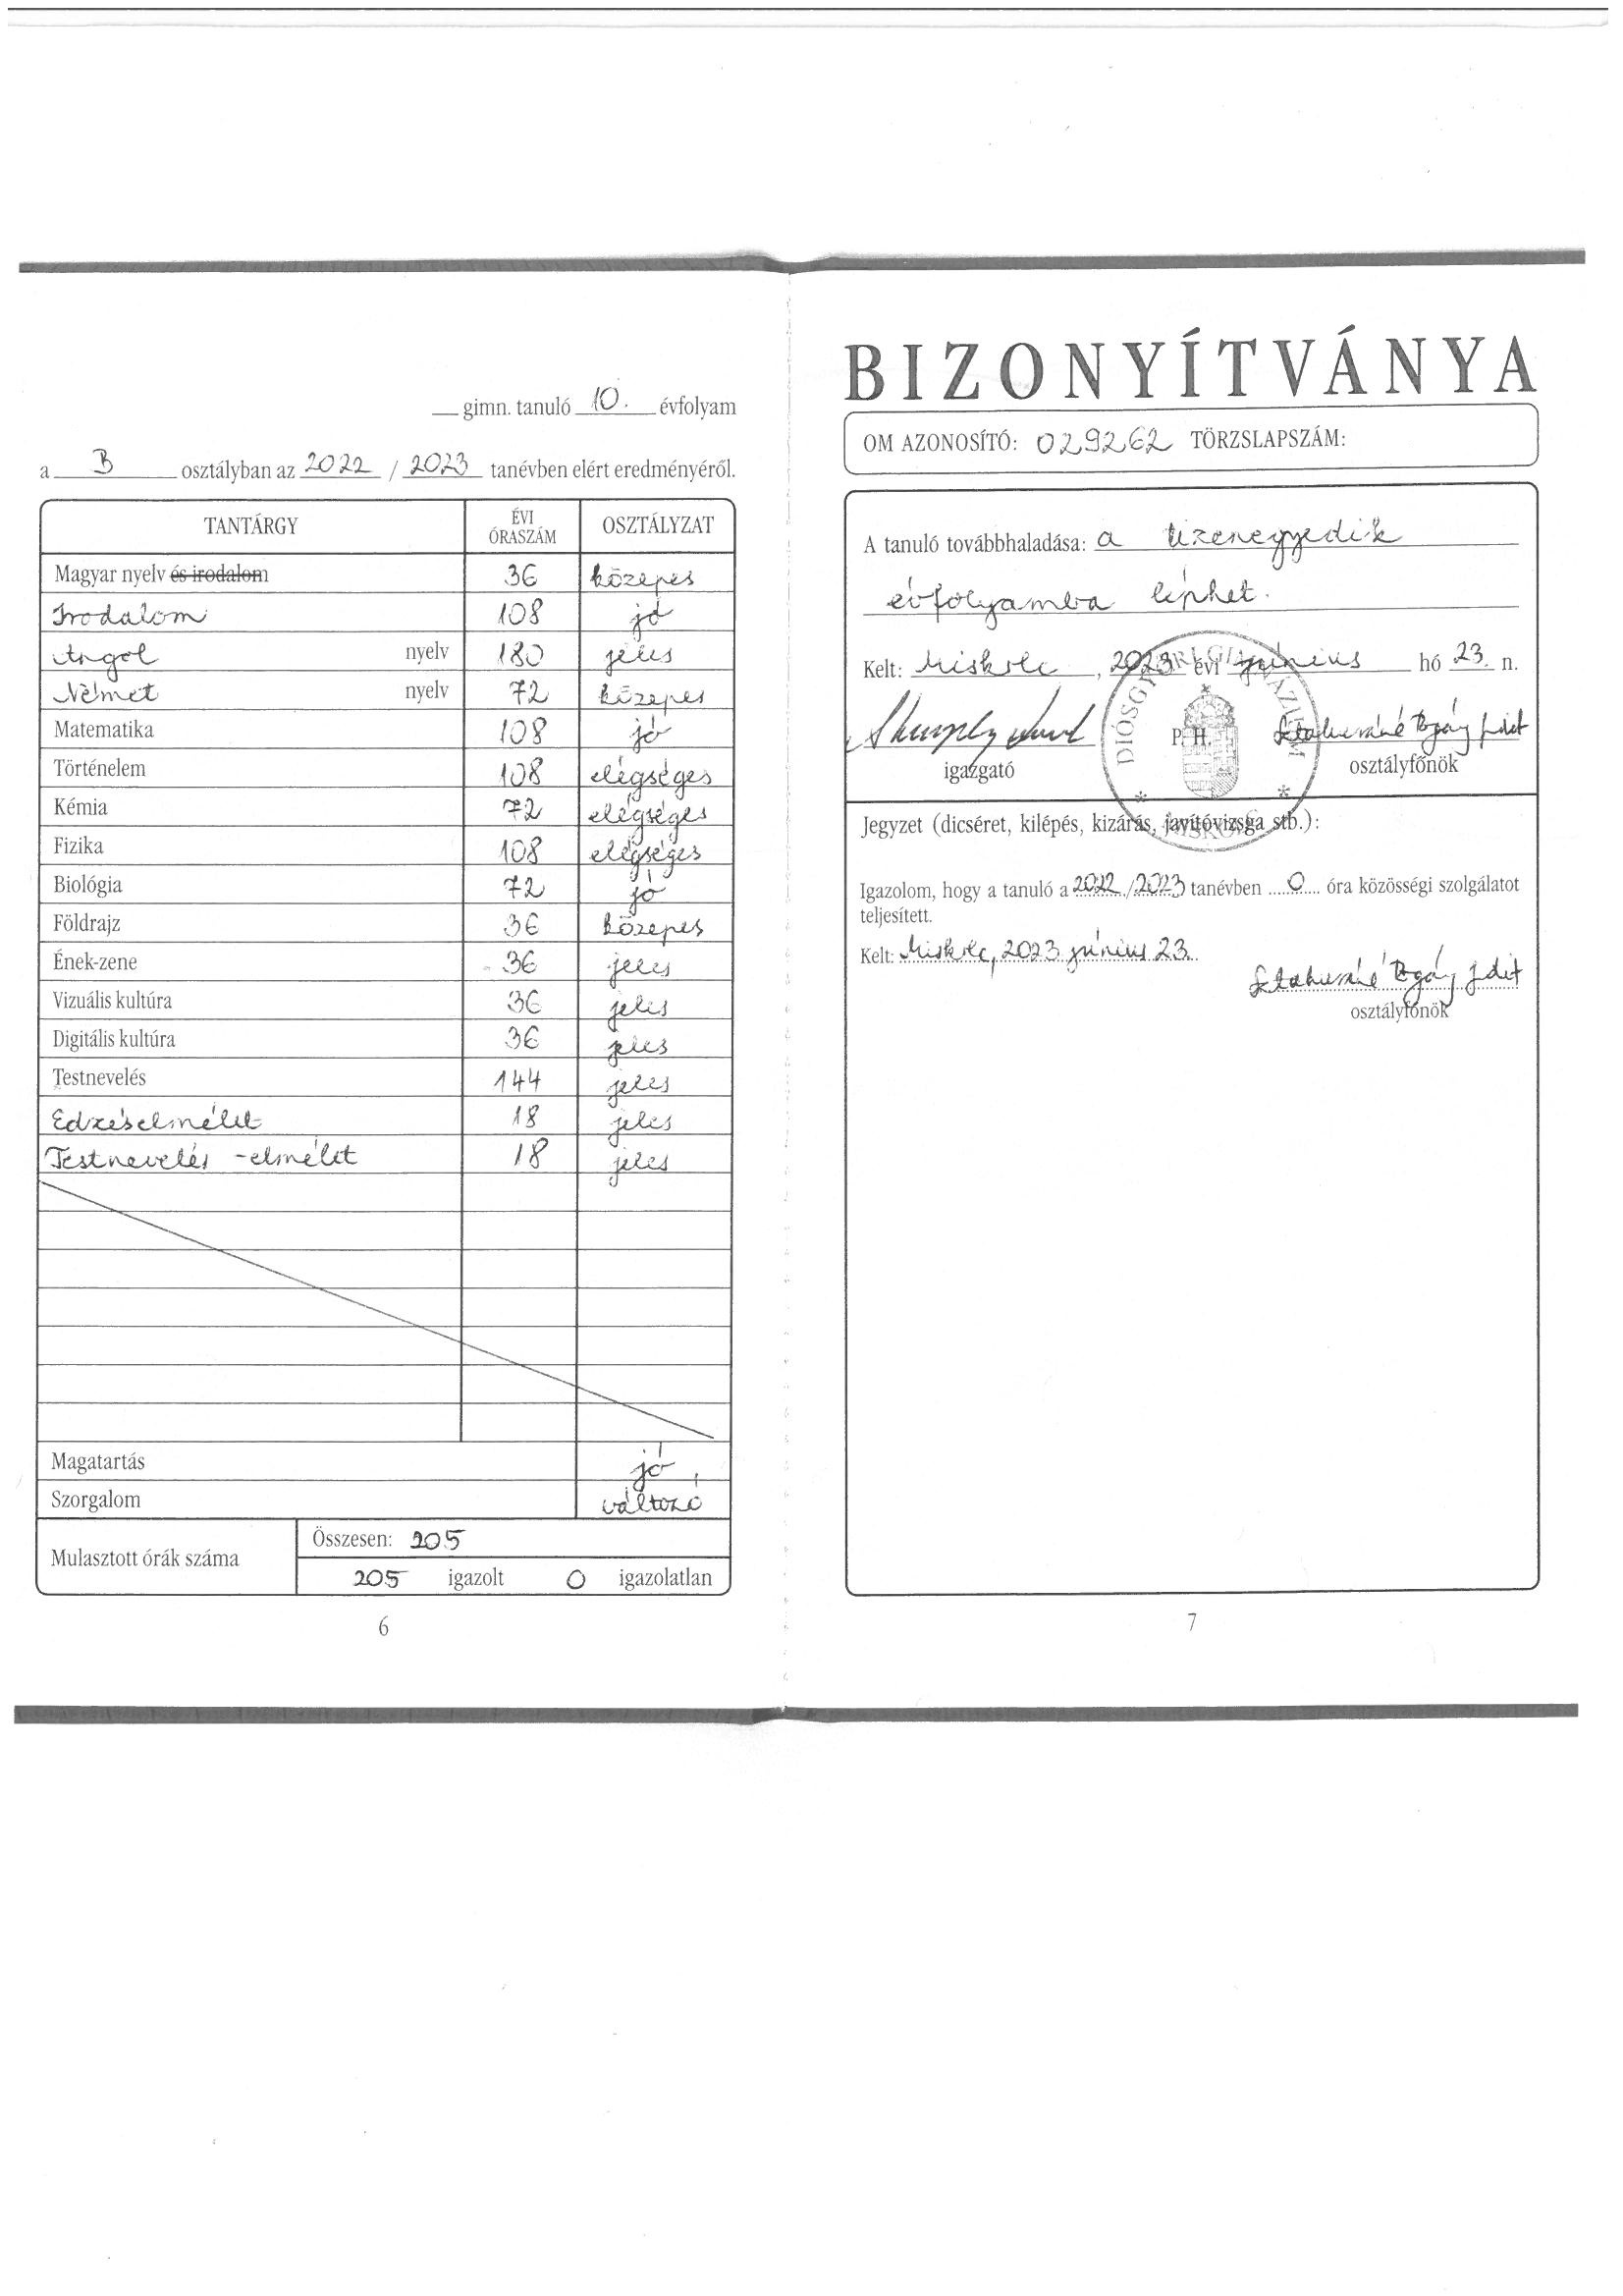 gimn. tanuló 10. évfolyam
a B osztályban az 2022 / 2023 tanévben elért eredményéről.
TANTÁRGY ÉVI ÓRASZÁM OSZTÁLYZAT
Magyar nyelv és irodalom 36 közepes
Irodalom 108 jó
Angol nyelv 180 jeles
Német nyelv 72 közepes
Matematika 108 jó
Történelem 108 elégséges
Kémia 72 elégséges
Fizika 108 elégséges
Biológia 72 jó
Földrajz 36 közepes
Ének-zene 36 jeles
Vizuális kultúra 36 jeles
Digitális kultúra 36 jeles
Testnevelés 144 jeles
Edzéselmélet 18 jeles
Testnevelés -elmélet 18 jeles
Magatartás jó
Szorgalom változó
Mulasztott órák száma
Összesen: 205
205 igazolt 0 igazolatlan
6
BIZONYÍTVÁNYA
OM AZONOSÍTÓ: 029262 TÖRZSLAPSZÁM:
A tanuló továbbhaladása: a tizenegyedik
évfolyamba léphet.
Kelt: Miskolc, 2023 évi június hó 23. n.
DIÓSGYŐRI GIMNÁZIUM
* MISKOLC *
P. H.
igazgató osztályfőnök
Jegyzet (dicséret, kilépés, kizárás, javítóvizsga stb.):
Igazolom, hogy a tanuló a 2022/2023 tanévben 0 óra közösségi szolgálatot
teljesített.
Kelt: Miskolc, 2023 június 23.
osztályfőnök
7